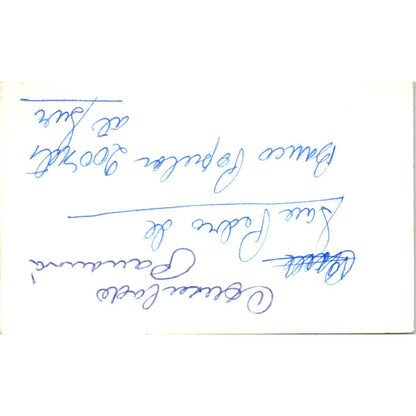 Consulado
Panamá
San Pedro de
Banco Popular 200 mts
al sur